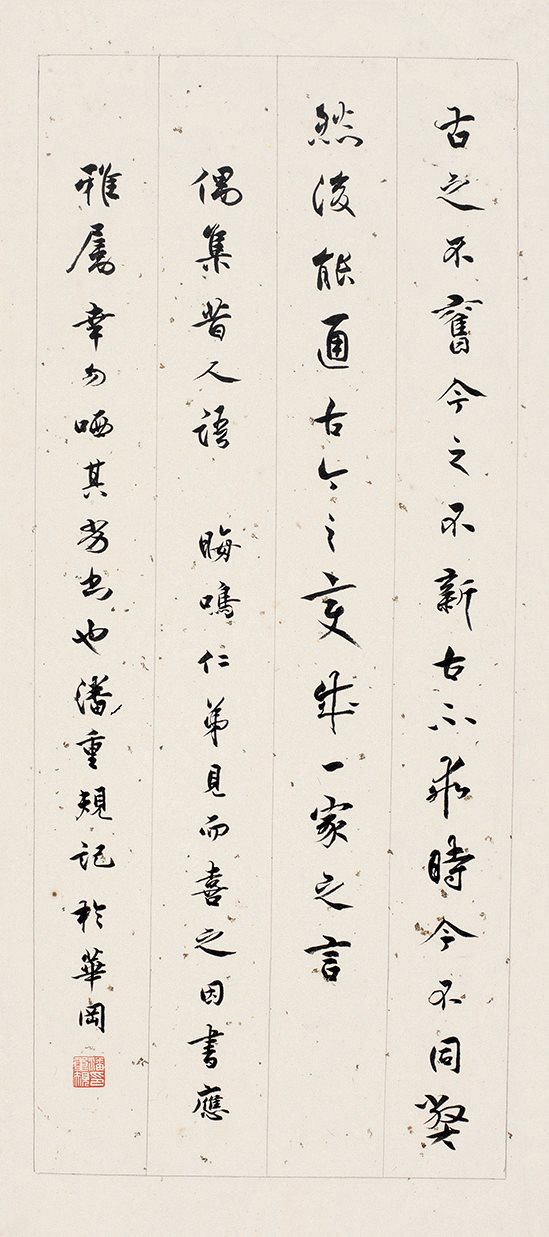 古之不舊今之不新古不乖時今不同弊
然後能通古今之變成一家之言
偶集昔人語　晦鳴仁弟見而喜之因書應
雅屬幸勿哂其劣也潘重規記於華岡